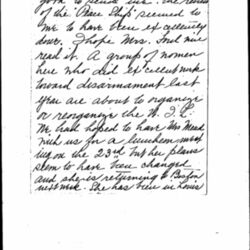 of the Peace Ship seemed to
me to have been exceedingly
done. I hope Mrs.
read it. A group of women
here who did excellent work
toward disarmament last
year are about to organize
or reorganize the W. I. L.
We had hoped to have Mrs Mead
with us for a luncheon meet-
ing on the 23rd but her plans
seem to have been changed
and she is returning to Boston
next week. She has been in